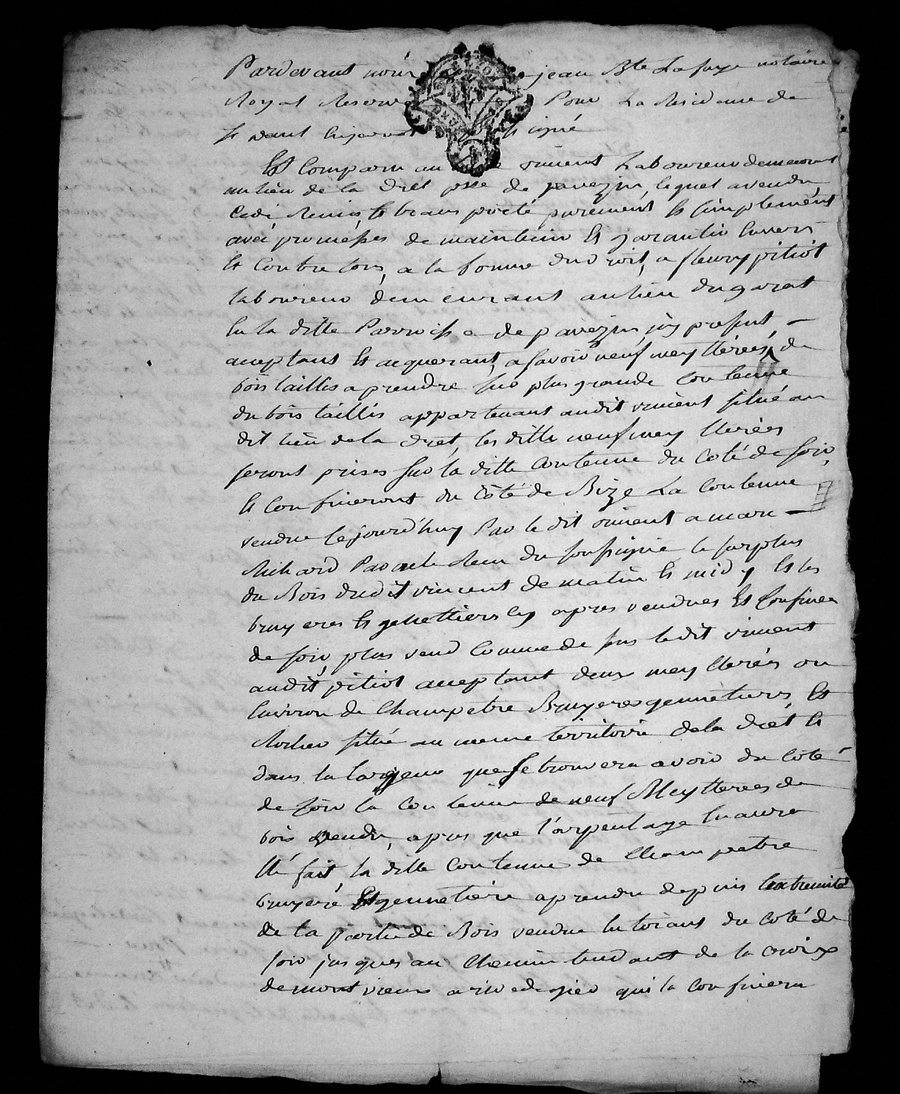 Pardevant nous jean Bte Lafaye notaire
Royal Reservé Pour La Residance de
St signé
Est Comparu vincent Laboureur demeurant
au lieu de la Diét psse de pavezin, lequel a vendu
Cedé Remis, et transporté purement et simplement
avec promesses de maintenir et garantir Envers
et Contre tous, a la forme du droit, a fleury pitiot
laboureur demeurant au lieu du garat
En la ditte Parroisse de pavezin icy present
acceptant et acquerant, a savoir neuf meytterées de
bois taillis a prendre sur plus grande Contenue
du bois taillis appartenant audit vincent situé au
dit lieu de la Diét, les ditte neuf meytterées
seront prises sur la ditte Contenue du Coté de soir
et Confineront du Côté de Bize La Contenue
vendue Cejourd'huy Par le dit vincent a marc
Richard Par acte Recu du soussigné le surplus
du Bois dudit vincent de matin et midy et les
bruyeres et genettiers cy apres vendues et Confinée
de soir, plus vend Comme de sus ledit vincent
audit pitiot acceptant deux meytterées ou
Environ de Champetre Bruyeres gennetiers et
Rocher situé au meme territoire de la Diét et
dans la largeur que se trouvera avoir du Coté
de soir la Contenue de neuf Meytterées de
bois vendu, apres que l'arpentage En aura
Eté fait la ditte Contenue de Champetre
bruyere et gennetiere a prendre depuis l'extremité
de la partie de Bois vendue tirant du Coté de
soir jusques au Chemin tendant de la Croix
de mont vieux a rivedegier qui la Confinera